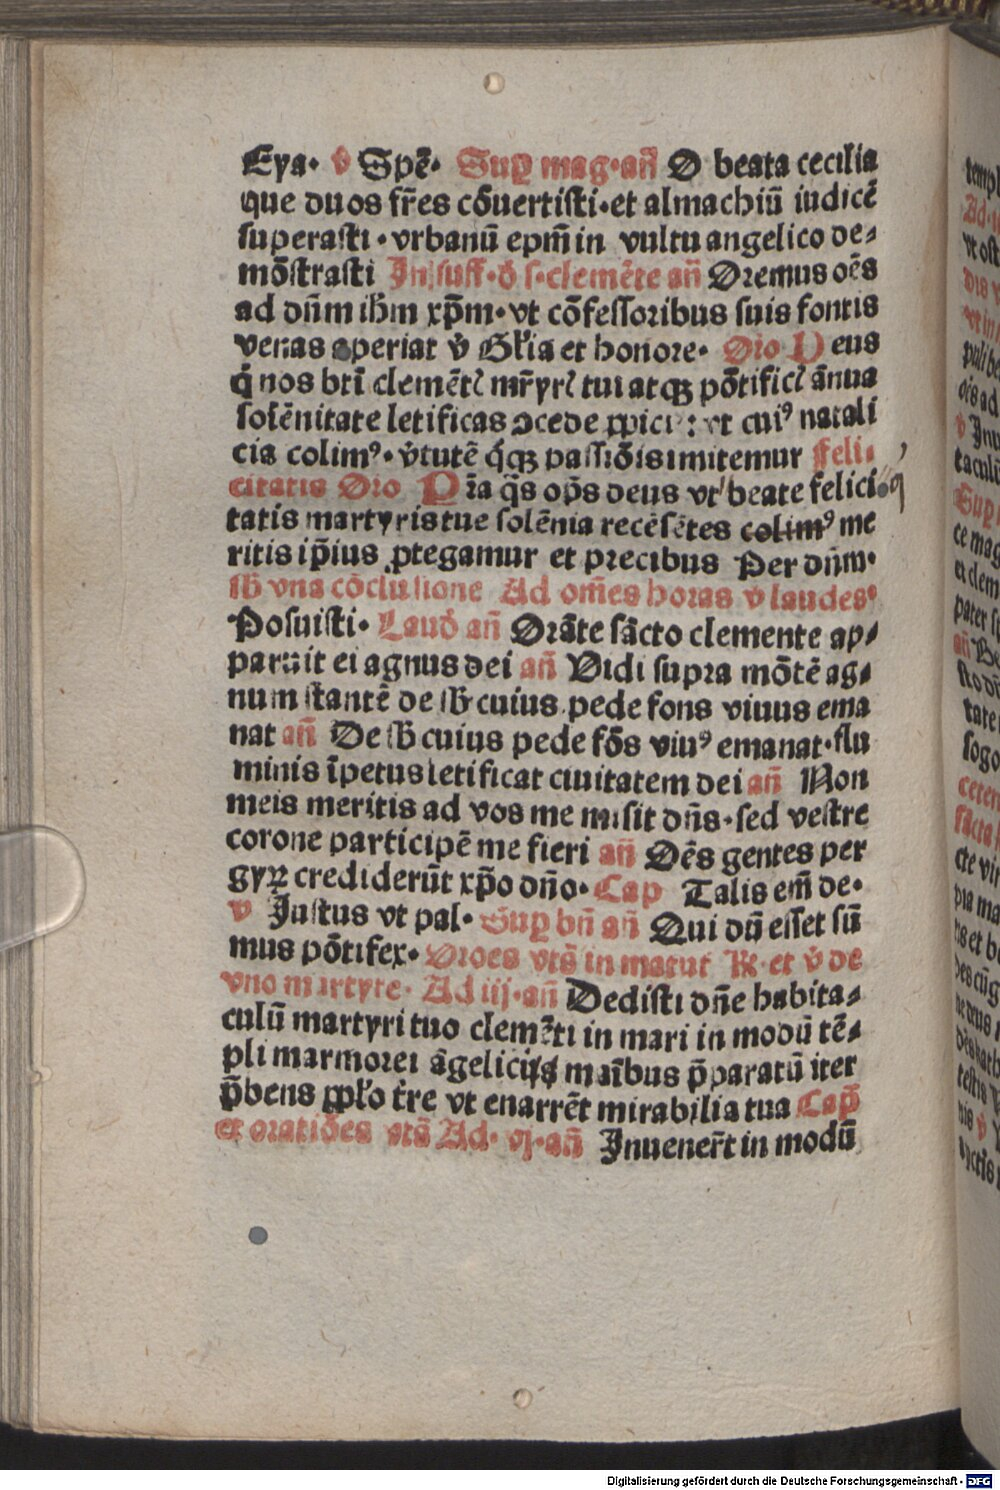 Eya· v̾ Spē· Suꝑ mag·an̄ O beata cecilia
que duos fr̄es cōuertisti·et almachiū iudicē
superasti·vrbanū epm̄ in vultu angelico de⸗
mōstrasti In suff·d̾ s·clemēte an̄ Oremus oēs
ad dn̄m ihm̄ xp̄m·vt cōfessoribus suis fontis
venas aperiat v̾ Gl̄ia et honore· Oro Deus
q̇ nos bt̄i clemēt̾ mr̄yr̾ tui atqꝫ pōtific̾ ānua
solēnitate letificas ↄcede ꝓpici : vt cuiꝰ natali
cia colimꝰ· v̾tutē q̇qꝫ passiōis imitemur Feli⸗
citatis Oro Pr̄a q̄s op̄s deus vt beate felici⸗
tatis martyris tue solēnia recēsētes colimꝰ me
ritis ip̄ius ꝓtegamur et precibus Per dn̄m·
sb̾ vna cōclusione Ad om̄es horas v̾ laudes·
Posuisti· Laud̾ an̄ Orāte sācto clemente ap⸗
paruit ei agnus dei an̄ Uidi supra mōtē ag⸗
num stantē de sb̾ cuius pede fons viuus ema
nat an̄ De sb̾ cuius pede fōs viuꝰ emanat·flu
minis īpetus letificat ciuitatem dei an̄ Non
meis meritis ad vos me misit dn̄s·sed vestre
corone participē me fieri an̄ Oēs gentes per
gyꝝ crediderūt xp̄o dn̄o· Cap Talis em̄ de·
v̾ Justus vt pal· Suꝑ bn̄ an̄ Qui dū esset sū
mus pōtifex· Oroes vts̄ in matut ℟·et v̾ de
vno martyre· Ad iij·an̄ Dedisti dn̄e habita⸗
culū martyri tuo clemēti in mari in modū tē⸗
pli marmorei āgelicis manibus p̄paratū iter
p̄bens ꝓpl̄o tr̄e vt enarrēt mirabilia tua Cap̄
et oratiōes vts̄ Ad· vj·an̄ Inuener̄t in modū
Digitalisierung gefördert durch die Deutsche Forschungsgemeinschaft · DFG